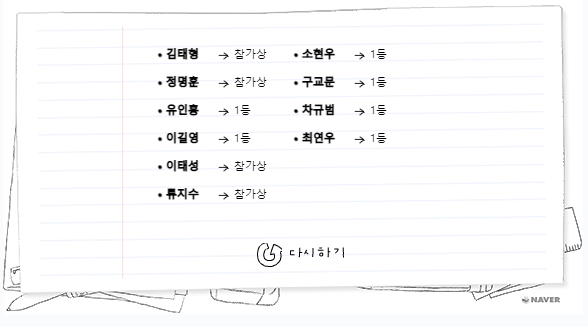 • 김태형 → 참가상 • 소현우 → 1등
• 정명훈 → 참가상 • 구교문 → 1등
• 유인홍 → 1등 • 차규범 → 1등
• 이길영 → 1등 • 최연우 → 1등
• 이태성 → 참가상
• 류지수 → 참가상
다시하기
NAVER